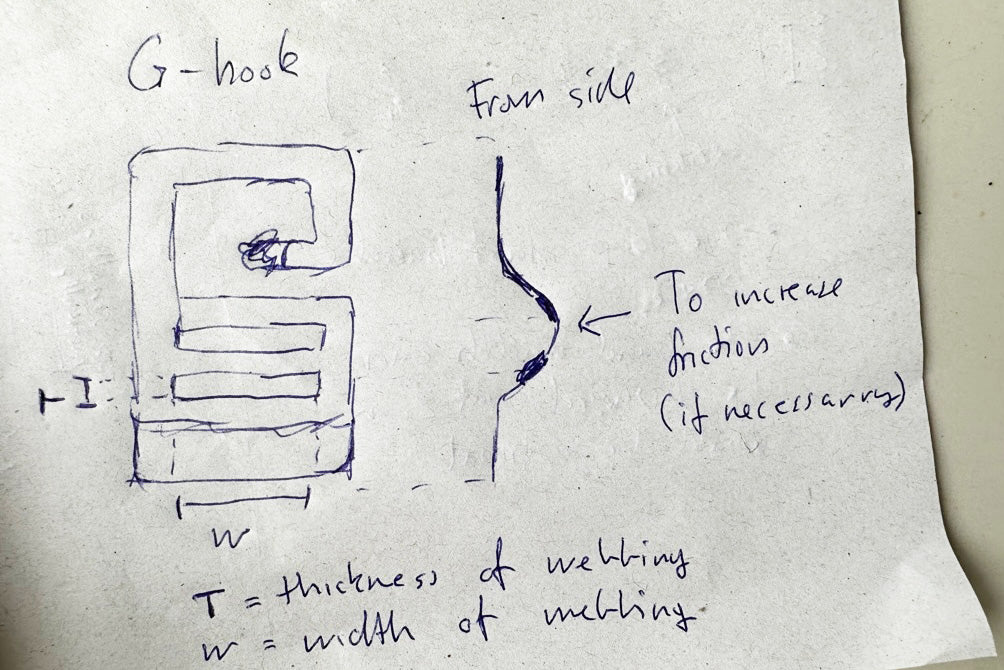 G-hook
From side
To increase
friction
(if necessarry)
T
W
T = thickness of webbing
W = width of webbing